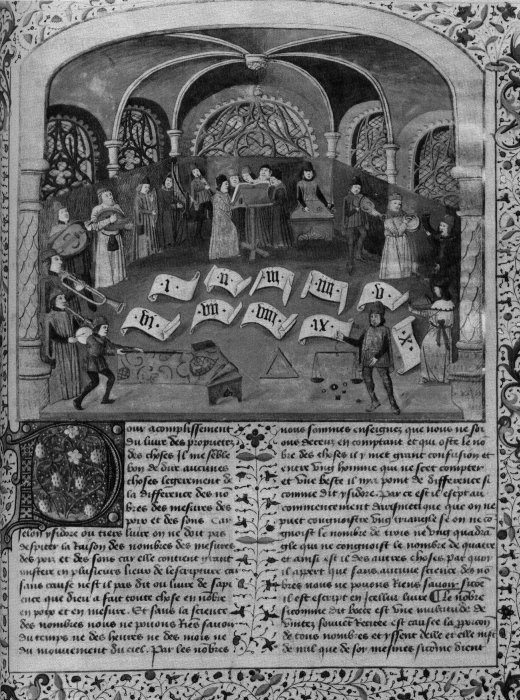 I
II
III
IIII
V
VI
VII
VIII
IX
X
our acomplissement
du livre des proprietez
des choses Il me semble
bon de dire aucunes
choses legierement de
la difference des no
bres des mesures des
poix et des sons Car
selon ysidore ou tiers livre on ne doit pas
despiter la raison des nombres des mesures
des poix et des sons car elle contient grant
mistere en plusieurs lieux de lescripture car
sans cause nest il pas dit ou livre de sapi
ence que dieu a fait toute chose en nobre
en poix et en mesure. Et sans la science
des nombres nous ne pouons riens sauoir
du temps ne des heures ne des mois ne
du mouuement du ciel. Par les nobres
nous sommes enseignez que nous ne soi
ons deceuz en comptant et qui oste le no
bre des choses il y met grant confusion et
entre ung homme qui ne scet compter
et une beste il na point de difference si
comme dit ysidore. Par ce est il escript au
commencement darismetique que on ne
puet congnoistre ung triangle se on ne co
gnoist le nombre de trois ne ung quadra
gle qui ne congnoist le nombre de quatre
et ainsi est il des autres choses. Par quoy
il appert que sans aucune science des no
bres nous ne pouons riens sauoir sicome
il est escript en icellui livre Le nobre
sicomme dit boece est une multitude de
unitez
de tous nombres et yssent delle et elle nyst
de nul que de soy mesmes sicome dient